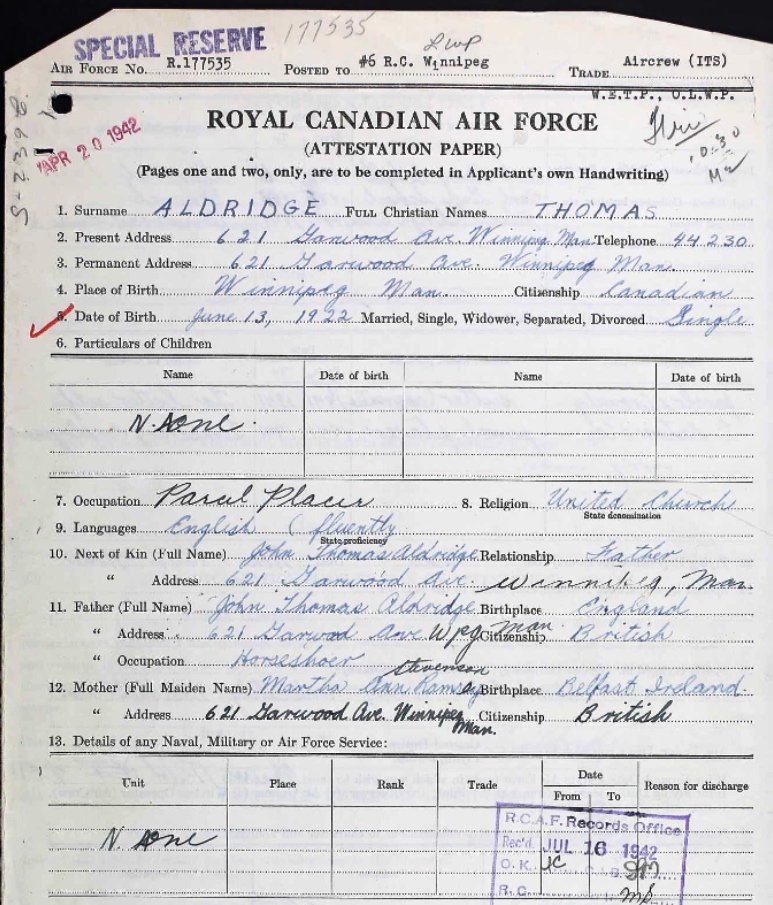 SPECIAL RESERVE 177535
AIR FORCE No. R.177535 POSTED TO #6 R.C. Winnipeg TRADE Aircrew (ITS)
W.E.T.P., O.L.W.P.
APR 20 1942
ROYAL CANADIAN AIR FORCE
(ATTESTATION PAPER)
(Pages one and two, only, are to be completed in Applicant's own Handwriting)
1. Surname ALDRIDGE FULL Christian Names THOMAS
2. Present Address 621 Garwood Ave. Winnipeg Man. Telephone 44230
3. Permanent Address 621 Garwood Ave. Winnipeg Man.
4. Place of Birth Winnipeg Man. Citizenship Canadian
5. Date of Birth June 13, 1922 Married, Single, Widower, Separated, Divorced Single
6. Particulars of Children
Name Date of birth Name Date of birth
None.
7. Occupation Parcel Placer 8. Religion United Church
State denomination
9. Languages English (fluently
State proficiency
10. Next of Kin (Full Name) John Thomas Aldridge Relationship Father
" Address 621 Garwood Ave. Winnipeg, Man.
11. Father (Full Name) John Thomas Aldridge Birthplace England
" Address 621 Garwood Ave Wpg Man. Citizenship British
" Occupation Horseshoer
Stevenson
12. Mother (Full Maiden Name) Martha Ann Ramsay Birthplace Belfast Ireland.
" Address 621 Garwood Ave. Winnipeg Man. Citizenship British
13. Details of any Naval, Military or Air Force Service:
Unit Place Rank Trade Date From To Reason for discharge
None
R.C.A.F. Records Office
Rec'd. JUL 16 1942
O.K.
R.C.